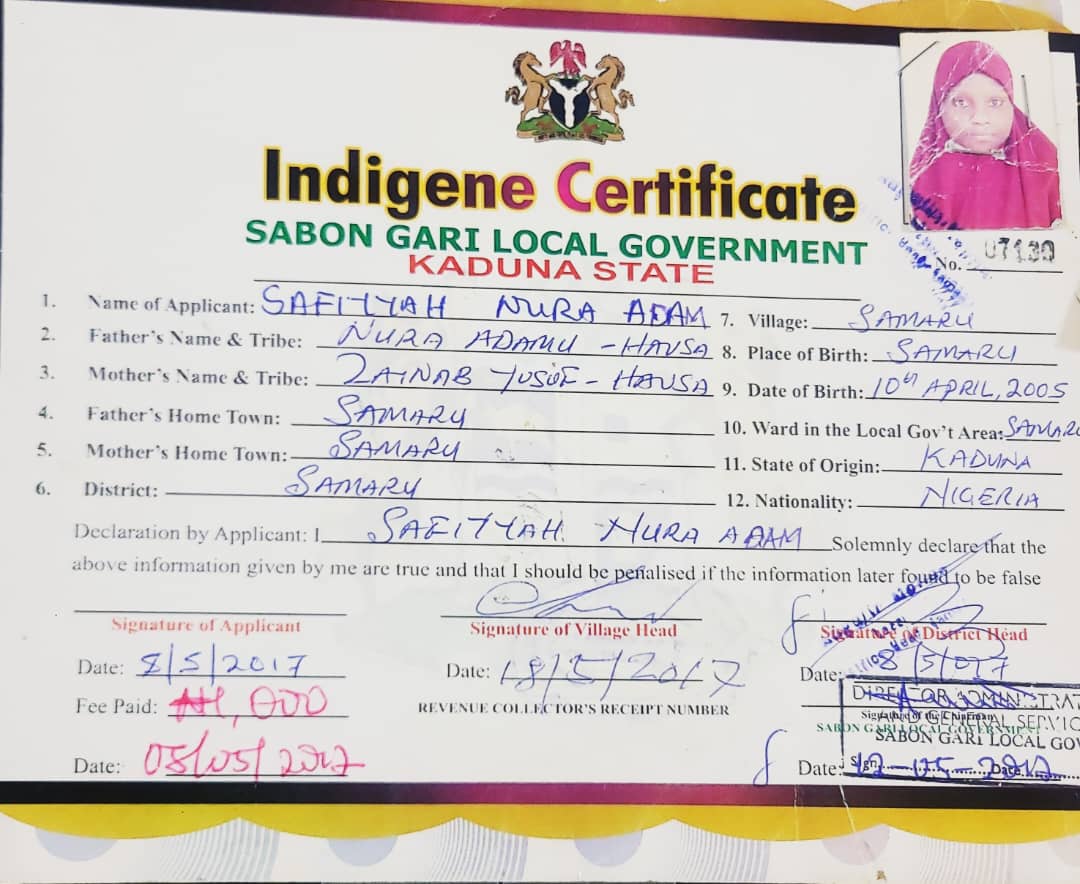 Indigene Certificate
SABON GARI LOCAL GOVERNMENT
KADUNA STATE
No. 07130
1. Name of Applicant: SAFIYYAH NURA ADAM
2. Father's Name & Tribe: NURA ADAMU - HAUSA
3. Mother's Name & Tribe: ZAINAB YUSUF - HAUSA
4. Father's Home Town: SAMARU
5. Mother's Home Town: SAMARU
6. District: SAMARU
7. Village: SAMARU
8. Place of Birth: SAMARU
9. Date of Birth: 10th APRIL, 2005
10. Ward in the Local Gov't Area: SAMARU
11. State of Origin: KADUNA
12. Nationality: NIGERIA
Declaration by Applicant: I SAFIYYAH NURA ADAM Solemnly declare that the
above information given by me are true and that I should be penalised if the information later found to be false
Signature of Applicant
Date: 8/5/2017
Fee Paid: ₦1,000
Date: 05/05/2017
Signature of Village Head
Date: 18/5/2017
REVENUE COLLECTOR'S RECEIPT NUMBER
Signature of District Head
Date:
DIRECTOR ADMINISTRAT
Signature of the Chairman
AND GENERAL SERVIC
SABON GARI LOCAL GOVERNMENT
SABON GARI LOCAL GOV
Date:
Sign
Date